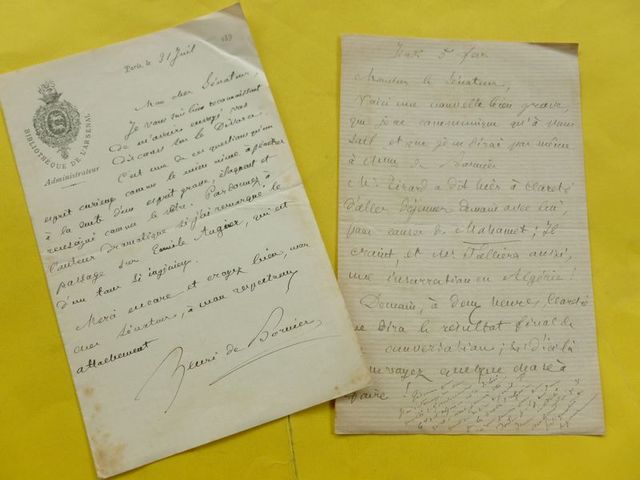 BIBLIOTHÈQUE DE L'ARSENAL
Administrateur
Paris, le 31 Juil 189
Mon cher Sénateur,
Je vous suis bien reconnaissant
de m'avoir envoyé vos
discours sur le Divorce.
C'est une de ces questions qu'un
esprit curieux comme le mien aime à
à la suite d'un esprit grave, éloquent et
renseigné comme le vôtre. Pardonnez à
l'auteur dramatique si j'ai remarqué le
passage sur Emile Augier, qui est
d'un tour si ingénieux.
Merci encore et croyez bien, mon
cher Sénateur, à mon respectueux
attachement
Henri de Bornier
Jeudi 5
Monsieur le Sénateur,
Voici une nouvelle bien grave,
que je ne communique qu'à vous
seul et que je ne dirai pas même
à
Mr. Tirard a dit hier à Claretie
d'aller déjeuner demain avec lui,
pour causer de Mahomet; Il
craint, et Mr. Fallières aussi,
une insurrection en Algérie!
Demain, à deux heures, Claretie
me dira le résultat final de
conversation; si d'ici là
voyez quelque chose à
faire!